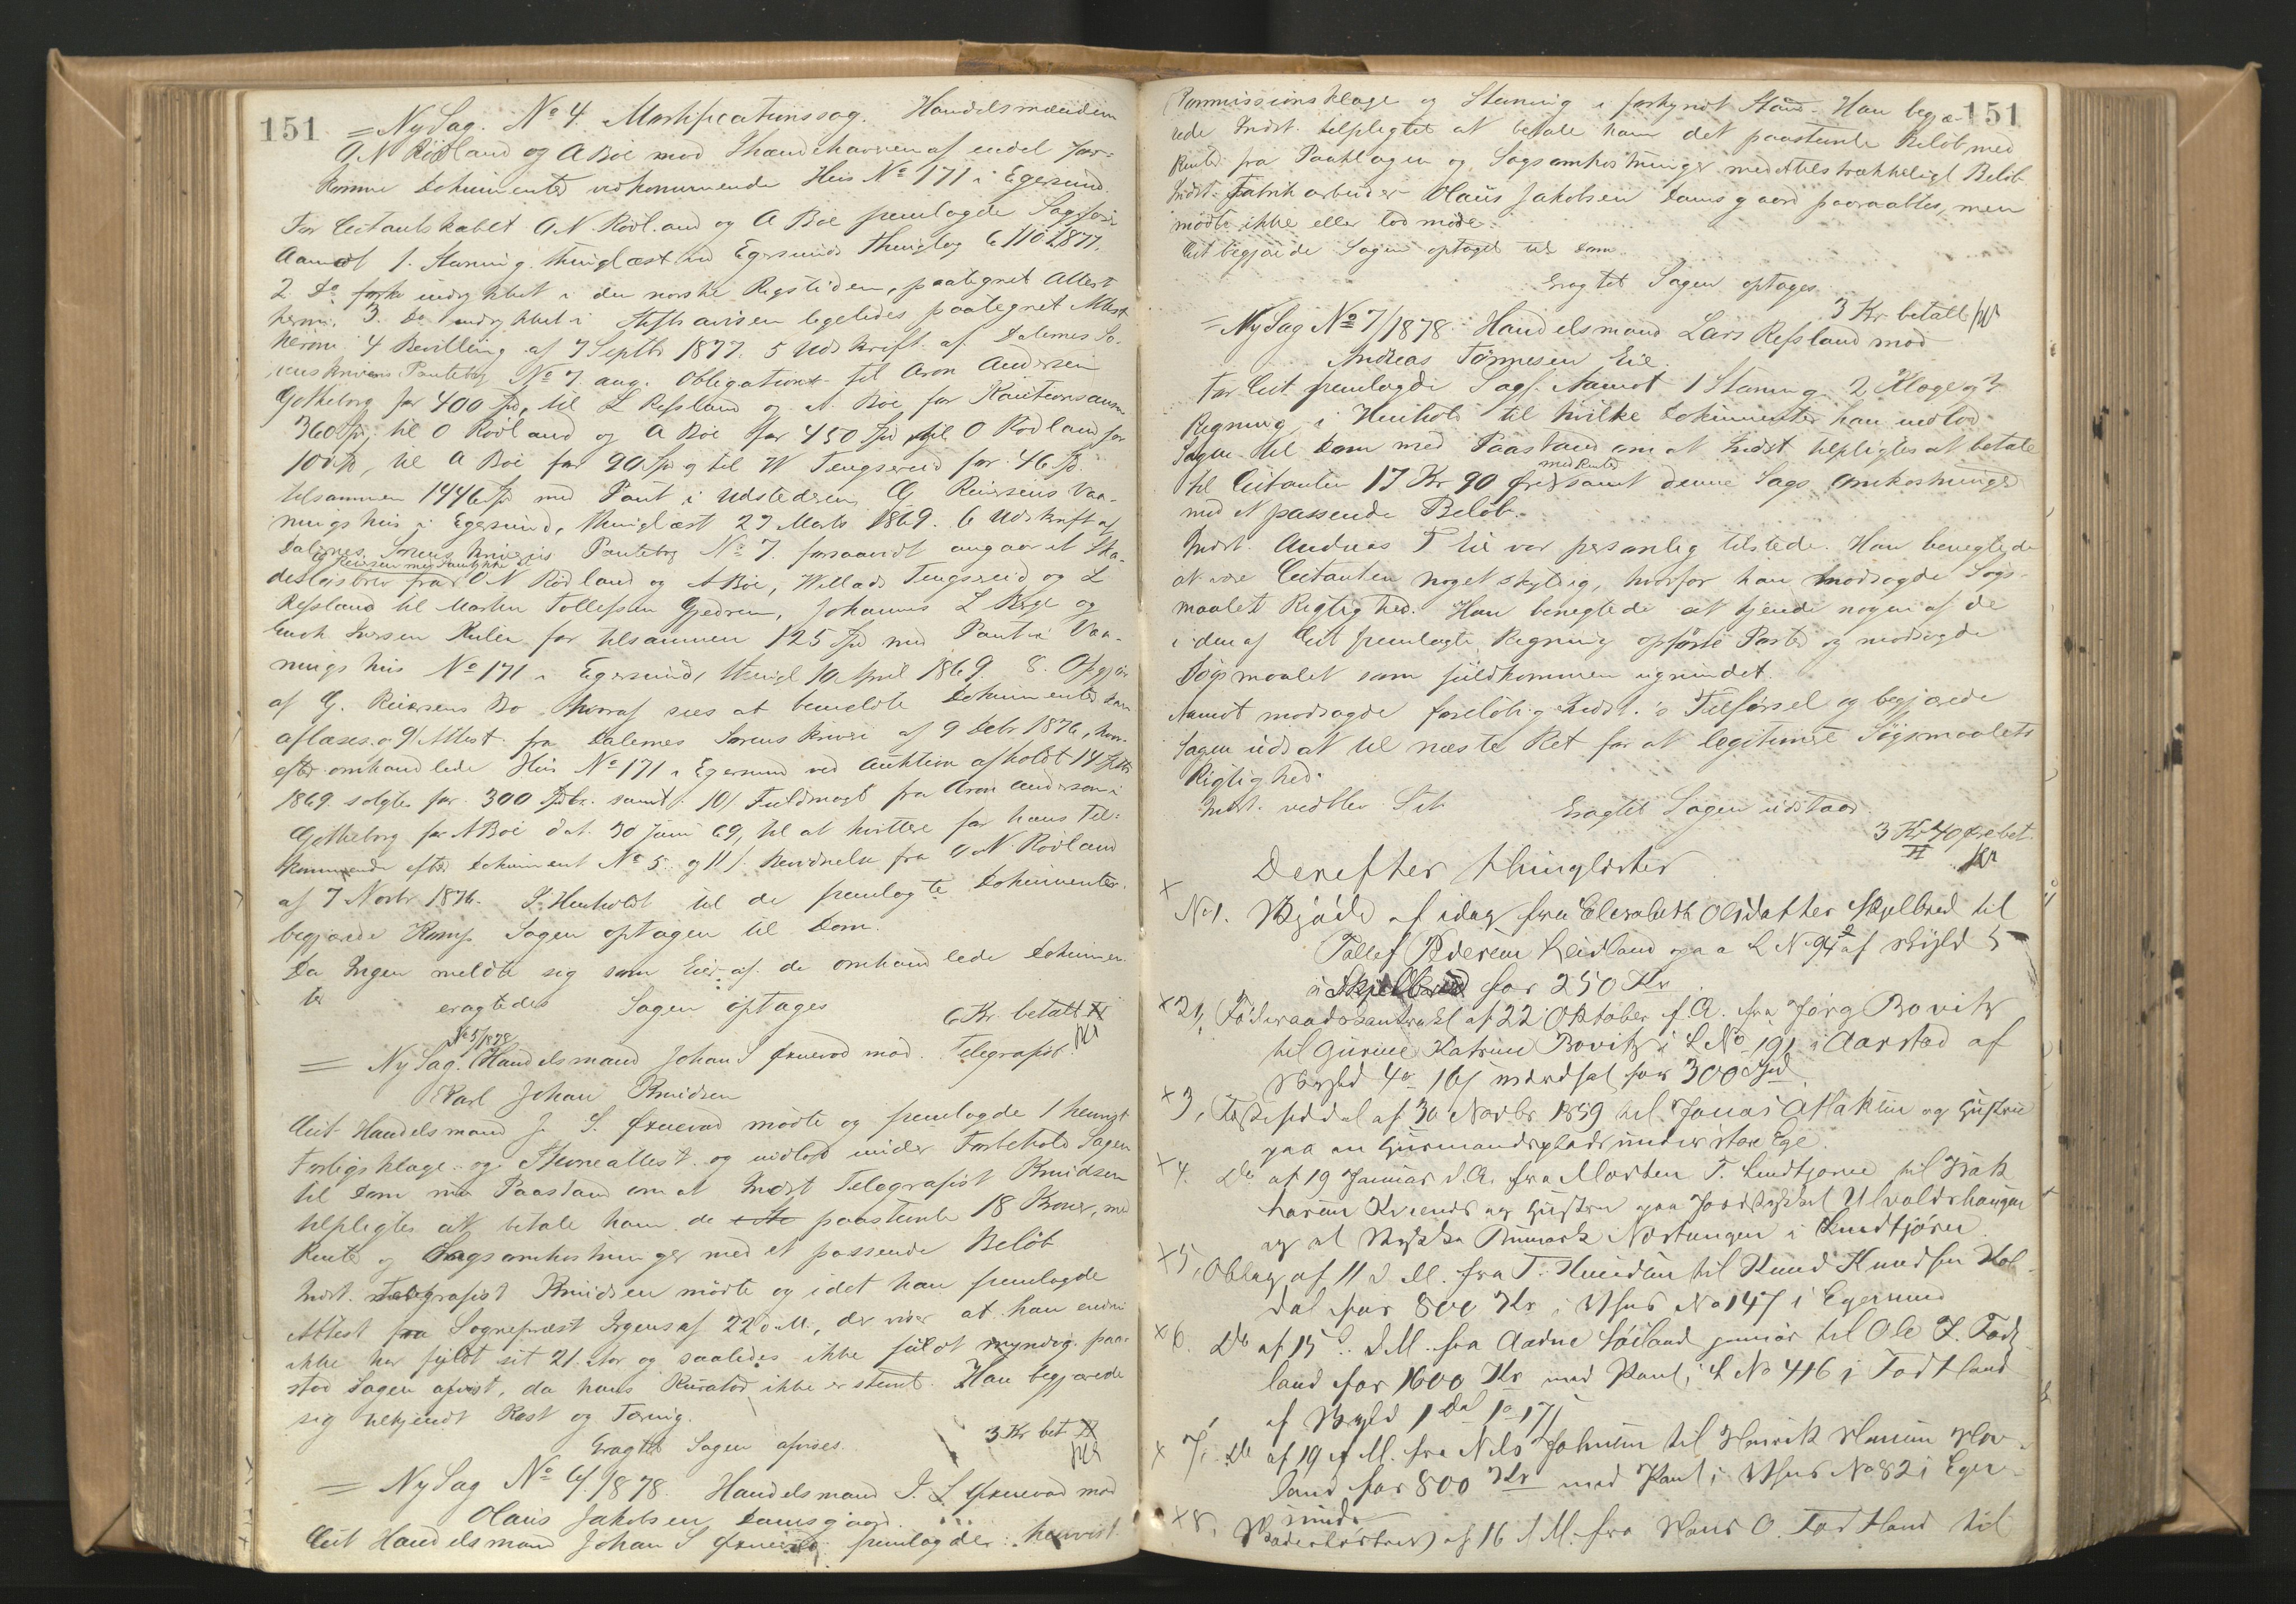 151
= Ny Sag. No 4. Mortificationssag. Handelsmændene
O N Rödland og A Böe mod Ihændehaveren af endel for-
komne Dokumenter vedkommende Hus No 171 i Egersund.
For Citantskabet O N. Rödland og A Böe fremlagde Sagfører
Aamodt 1. Stævning thinglæst ved Egersunds Thinglag 6/10 1877.
2 Do indrykket i den norske Rigstidende, paategnet Attest
herom, 3. Do indrykket i Stiftsavisen ligeledes paategnet Attest
herom 4 Bevilling af 7 Septbr 1877. 5 Udskrift af Dalernes So-
renskrivers Pantebog No 7. ang. Obligation til Aron Andersen
Gøtheborg for 400 Spd, til L Refsland og A. Böe for Kautionsansv
360 Spd, til O Rödland og A Böe for 450 Spd, til O Rödland for
100 Sp, til A Böe for 90 Spd og til W Tengsereid for 46 Sp.
tilsammen 1446 Spd med Pant i Udstederen G Reiersens Vaa-
ningshus i Egersund, thinglæst 27 Marts 1869. 6 Udskrift af
Dalernes Sorenskriveris Pantebog No 7. forsaavidt angaar et Ska-
G Reiersen med Samtykke af
desløsbrev fra O N Rödland og A Böe, Willads Tengsereid og L
Refsland til Martin Tollefsen Gjedrem, Johannes L Berge og
Enok Iversen for tilsammen 125 Spd med Pant i Vaa-
ningshus No 171 i Egersund, thingl 10 April 1869. 8. Opgjør
af G. Reiersens Bo hvoraf sees at bemeldte Dokumenter kan
aflæses. og 9/ Attest fra Dalernes Sorenskriver af 9 Debr 1876, hvor-
efter omhandlede Hus No 171 i Egersund ved Auktion afholdt 14
1869 solgtes for 300 Spd. samt 10/ Fuldmagt fra Aron Anderson i
Gøtheborg for A Böe dat. 30 Juni 69, til at kvittere for hans Til-
kommende efter Dokument No 5. og 11/. Bevidnelse fra O N Rödland
af 7 Novbr 1876. I Henhold til de fremlagte Dokumenter
begjærede Komp. Sagen optagen til Dom.
Da Ingen meldte sig som Eier af de omhandlede Dokumen-
ter eragtedes Sagen optages
6 Kr. betalt
No 5/1878
= Ny Sag. Handelsmand Johan S Øxnevad mod Telegrafist
Karl Johan Knudsen
Cit Handelsmand J. S. Øxnevad mødte og fremlagde 1 henvist
Forligsklage og Thingattest og indlod under Forbehold Sagen
til Dom med Paastand om at Indst Telegrafist Knudsen
tilpligtes at betale ham de paastevnte 18 Kroner, med
Renter og Sagsomkostninger med et passende Beløb
Indst. Telegrafist Knudsen mødte og idet han fremlagde
Attest fra Sogneprest Irgens af 22 d M., der viser at han endnu
ikke har fyldt sit 21. Aar og saaledes ikke fuldt myndig paa-
stod Sagen afvist, da hans Kurator ikke er stevnt. Han begjærede
sig tilkjendt Kost og Tæring.
Eragtet Sagen afvises.
3 Kr bet
= Ny Sag No 6/1878. Handelsmand J. S Øxnevad mod
Olaus Jakobsen Damsgaard.
Cit Handelsmand Johan S Øxnevad fremlagde henvist
151
Kommissionsklage og Stevning i forkyndt Stand. Han begjæ-
rede Indst. tilpligtet at betale ham det paastevnte Beløb med
Renter fra Paaklagen og Sagsomkostninger med et tilstrækkeligt Beløb
Indst. Fabrikarbeider Olaus Jakobsen Damsgaard paaraabtes, men
mødte ikke eller lod møde.
Cit begjærede Sagen optaget til Dom
Eragtet Sagen optages
3 Kr betalt
= Ny Sag No 7/1878. Handelsmand Lars Refsland mod
Andreas Tønnesen Eie.
For Cit fremlagde Sagf. Aamodt 1 Stevning 2 Klage og 3
Regning, i Henhold til hvilke Dokumenter han indlod
Sagen til Dom med Paastand om at Indst tilpligtes at betale
med Renter
til Citanten 17 Kr 90 Øre samt denne Sags Omkostninger
med et passende Beløb.
Indst. Andreas T Eie var personlig tilstede. Han benegtede
at være Citanten noget skyldig, hvorfor han modsagde Søgs-
maalets Rigtighed. Han benegtede at kjende nogen af de
i den af Cit fremlagte Regning opførte Poster og modsagde
Søgsmaalet som fuldkommen ugrundet.
Aamodt modsagde foreløbig Indst.'s Tilførsel og begjærede
Sagen udsat til næste Ret for at legitimere Søgsmaalets
Rigtighed.
Indst. vedblev Sit
Eragtet Sagen udstaar
3 Kr 40 Øre bet.
Derefter thinglæstes
x No 1. Skjøde af idag fra Elisabeth Olsdatter Skjelbred til
Tollef Pedersen Leidland paa L No 94 af Skyld 5
i Skjelbred for 250 Kr
x 2, Föderaadskontrakt af 22 Oktober f. A. fra Jörg Bowitz
til Gurine Katrine Bowitz i L No 191 i Aarstad af
Skyld 4 16 værdsat for 300 Spd
x 3, Festeseddel af 30 Novbr 1859 til Jonas Aslaksen og Hustru
paa en Husmandsplads under store Ege.
x 4. Do af 19 Januar d. A. fra Morten T. Lindtjørn til Isak
Larsen og Hustru paa Jordstykket Ulvaldshaugen
og et Stykke i Lindtjörn
x 5, Oblag af 11 d M. fra T. til Knud Knudsen Hol-
dal for 800 Kr i Hus No 147 i Egersund
x 6. Do af 15 d. M. fra Aadne Höiland junior til Ole J. Fodt-
land for 1600 Kr med Pant i L No 416 i Fodtland
af Skyld 1 Dal 1 o 17/
x 7. Do af 19 d M. fra Nils Johnsen til Henrik Hansen Hov-
land for 800 Kr med Pant i Hus No 82 i Eger-
sund.
x 8. af 16 d M. fra Hans O. Fodtland til